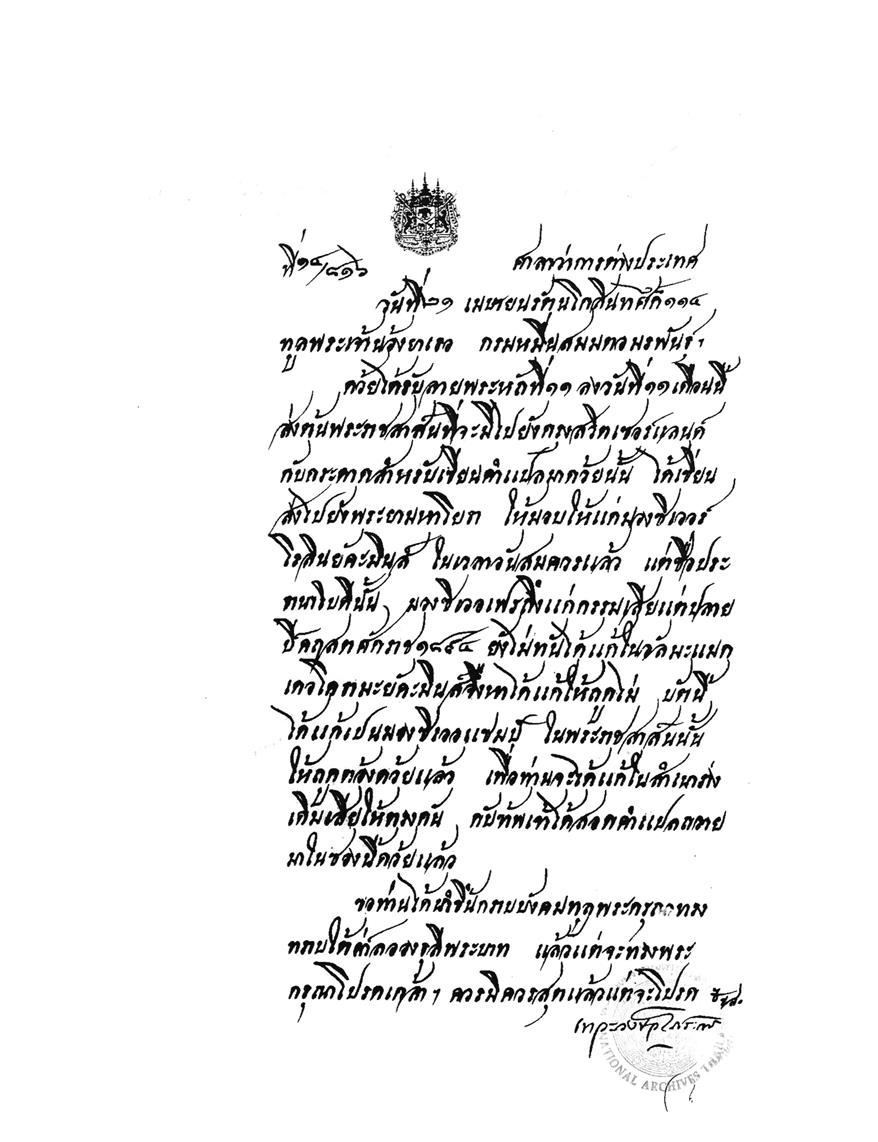 ที่ ๑๔/๘๑๖ ศาลาว่าการต่างประเทศ
วันที่ ๒๑ เมษายน รัตนโกสินทรศก ๑๑๔
ทูลพระเจ้าน้องยาเธอ กรมหมื่นสมมตอมรพันธุ์ ฯ
ด้วยได้รับลายพระหัตถ์ที่ ๑๑ ลงวันที่ ๑๑ เดือนนี้
ส่งต้นพระราชสาส์นที่จะมีไปยังกรุงสวิตเซอร์แลนด์
กับกระดาดสำหรับเขียนคำแปลมาด้วยนั้น ได้เขียน
ส่งไปยังพระยามหาโยธา ให้มอบให้แก่มองซิเออร์
โรลินยัคะมินส์ ในเวลาอันสมควรแล้ว แต่ชื่อประ
ธานาธิบดีนั้น มองซิเออเฟร ถึงแก่กรรมเสียแต่ปลาย
ปีคฤสตศักราช ๑๘๙๔ ยังไม่ทันได้แก้ใน
ให้ถูกไม่ บัดนี้
ได้แก้เปนมองซิเออแซมป์ ในพระราชสาส์นนั้น
ให้ถูกต้องด้วยแล้ว เพื่อท่านจะได้แก้ในสำเนาร่าง
เดิมเสียให้ตรงกัน กับข้าพเจ้าได้สอดคำแปลถวาย
มาในซองนี้ด้วยแล้ว
ขอท่านได้นำขึ้นกราบบังคมทูลพระกรุณาทรง
ทราบใต้ฝ่าลอองธุลีพระบาท แล้วแต่จะทรงพระ
กรุณาโปรดเกล้า ฯ ควรมิควรสุดแล้วแต่จะโปรด
เทวะวงษวโรประการ
NATIONAL ARCHIVES